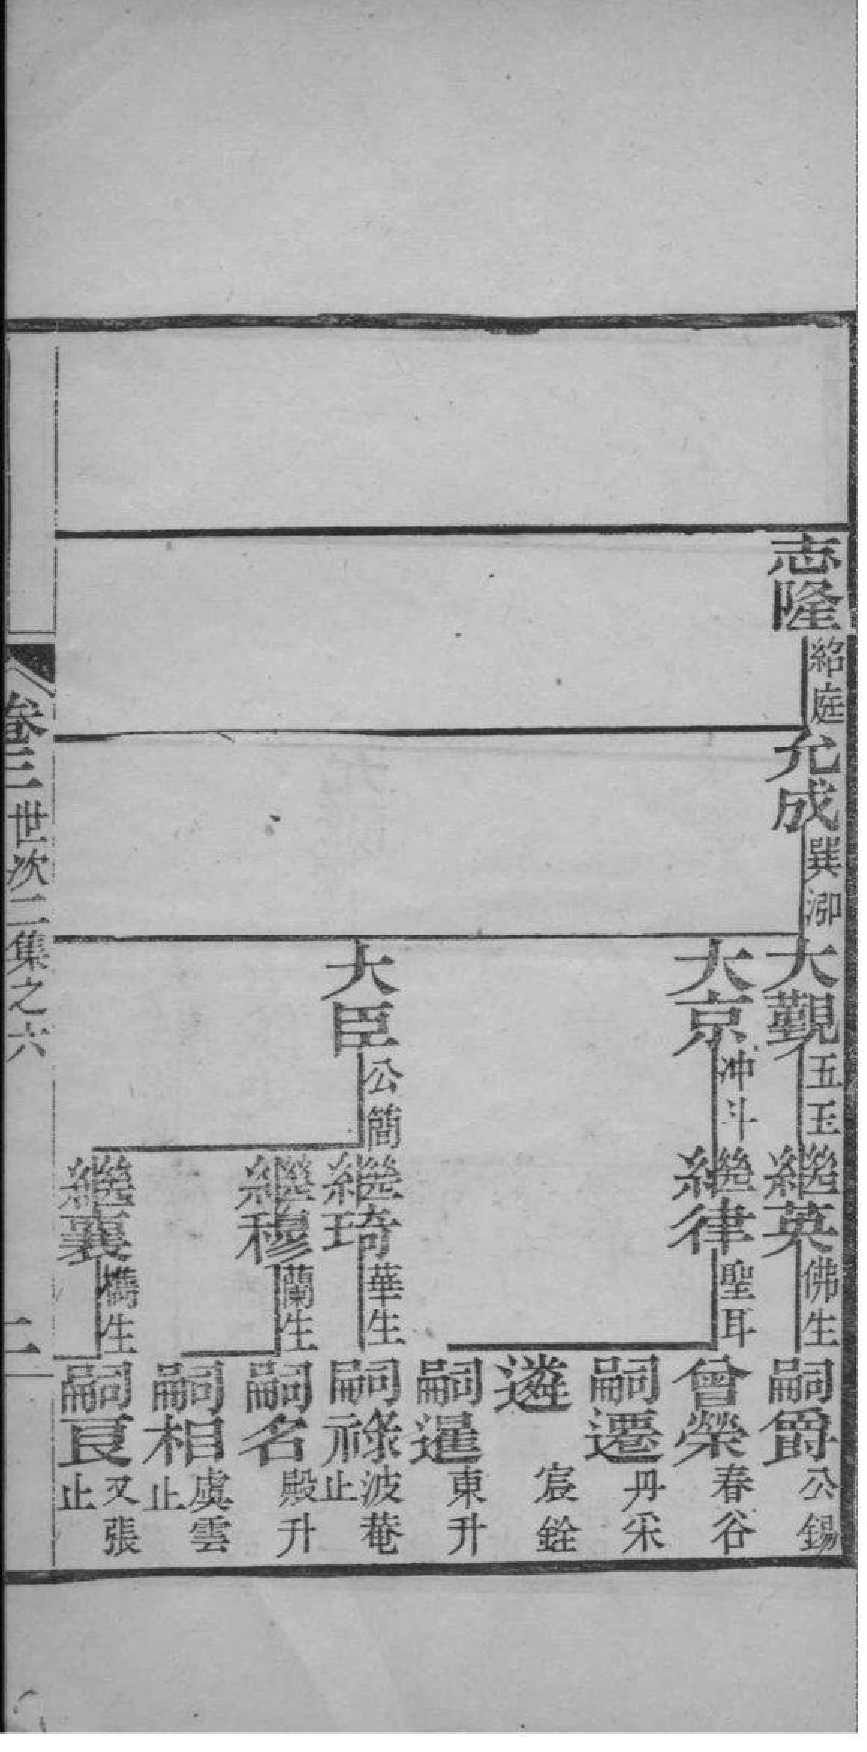 志隆 紹庭
允成 巽泖
大觀 五玉
繼英 佛生
嗣爵 公錫
大京 冲斗
繼律 聖耳
曾榮 春谷
嗣遷 丹宷
遴 宸銓
嗣暹 東升
大臣 公簡
繼琦 華生
嗣祿 波菴 止
繼穆 蘭生
嗣名 殿升
嗣相 虞雲 止
繼襄 檇生
嗣良 又張 止
卷三 世次二集之六 二